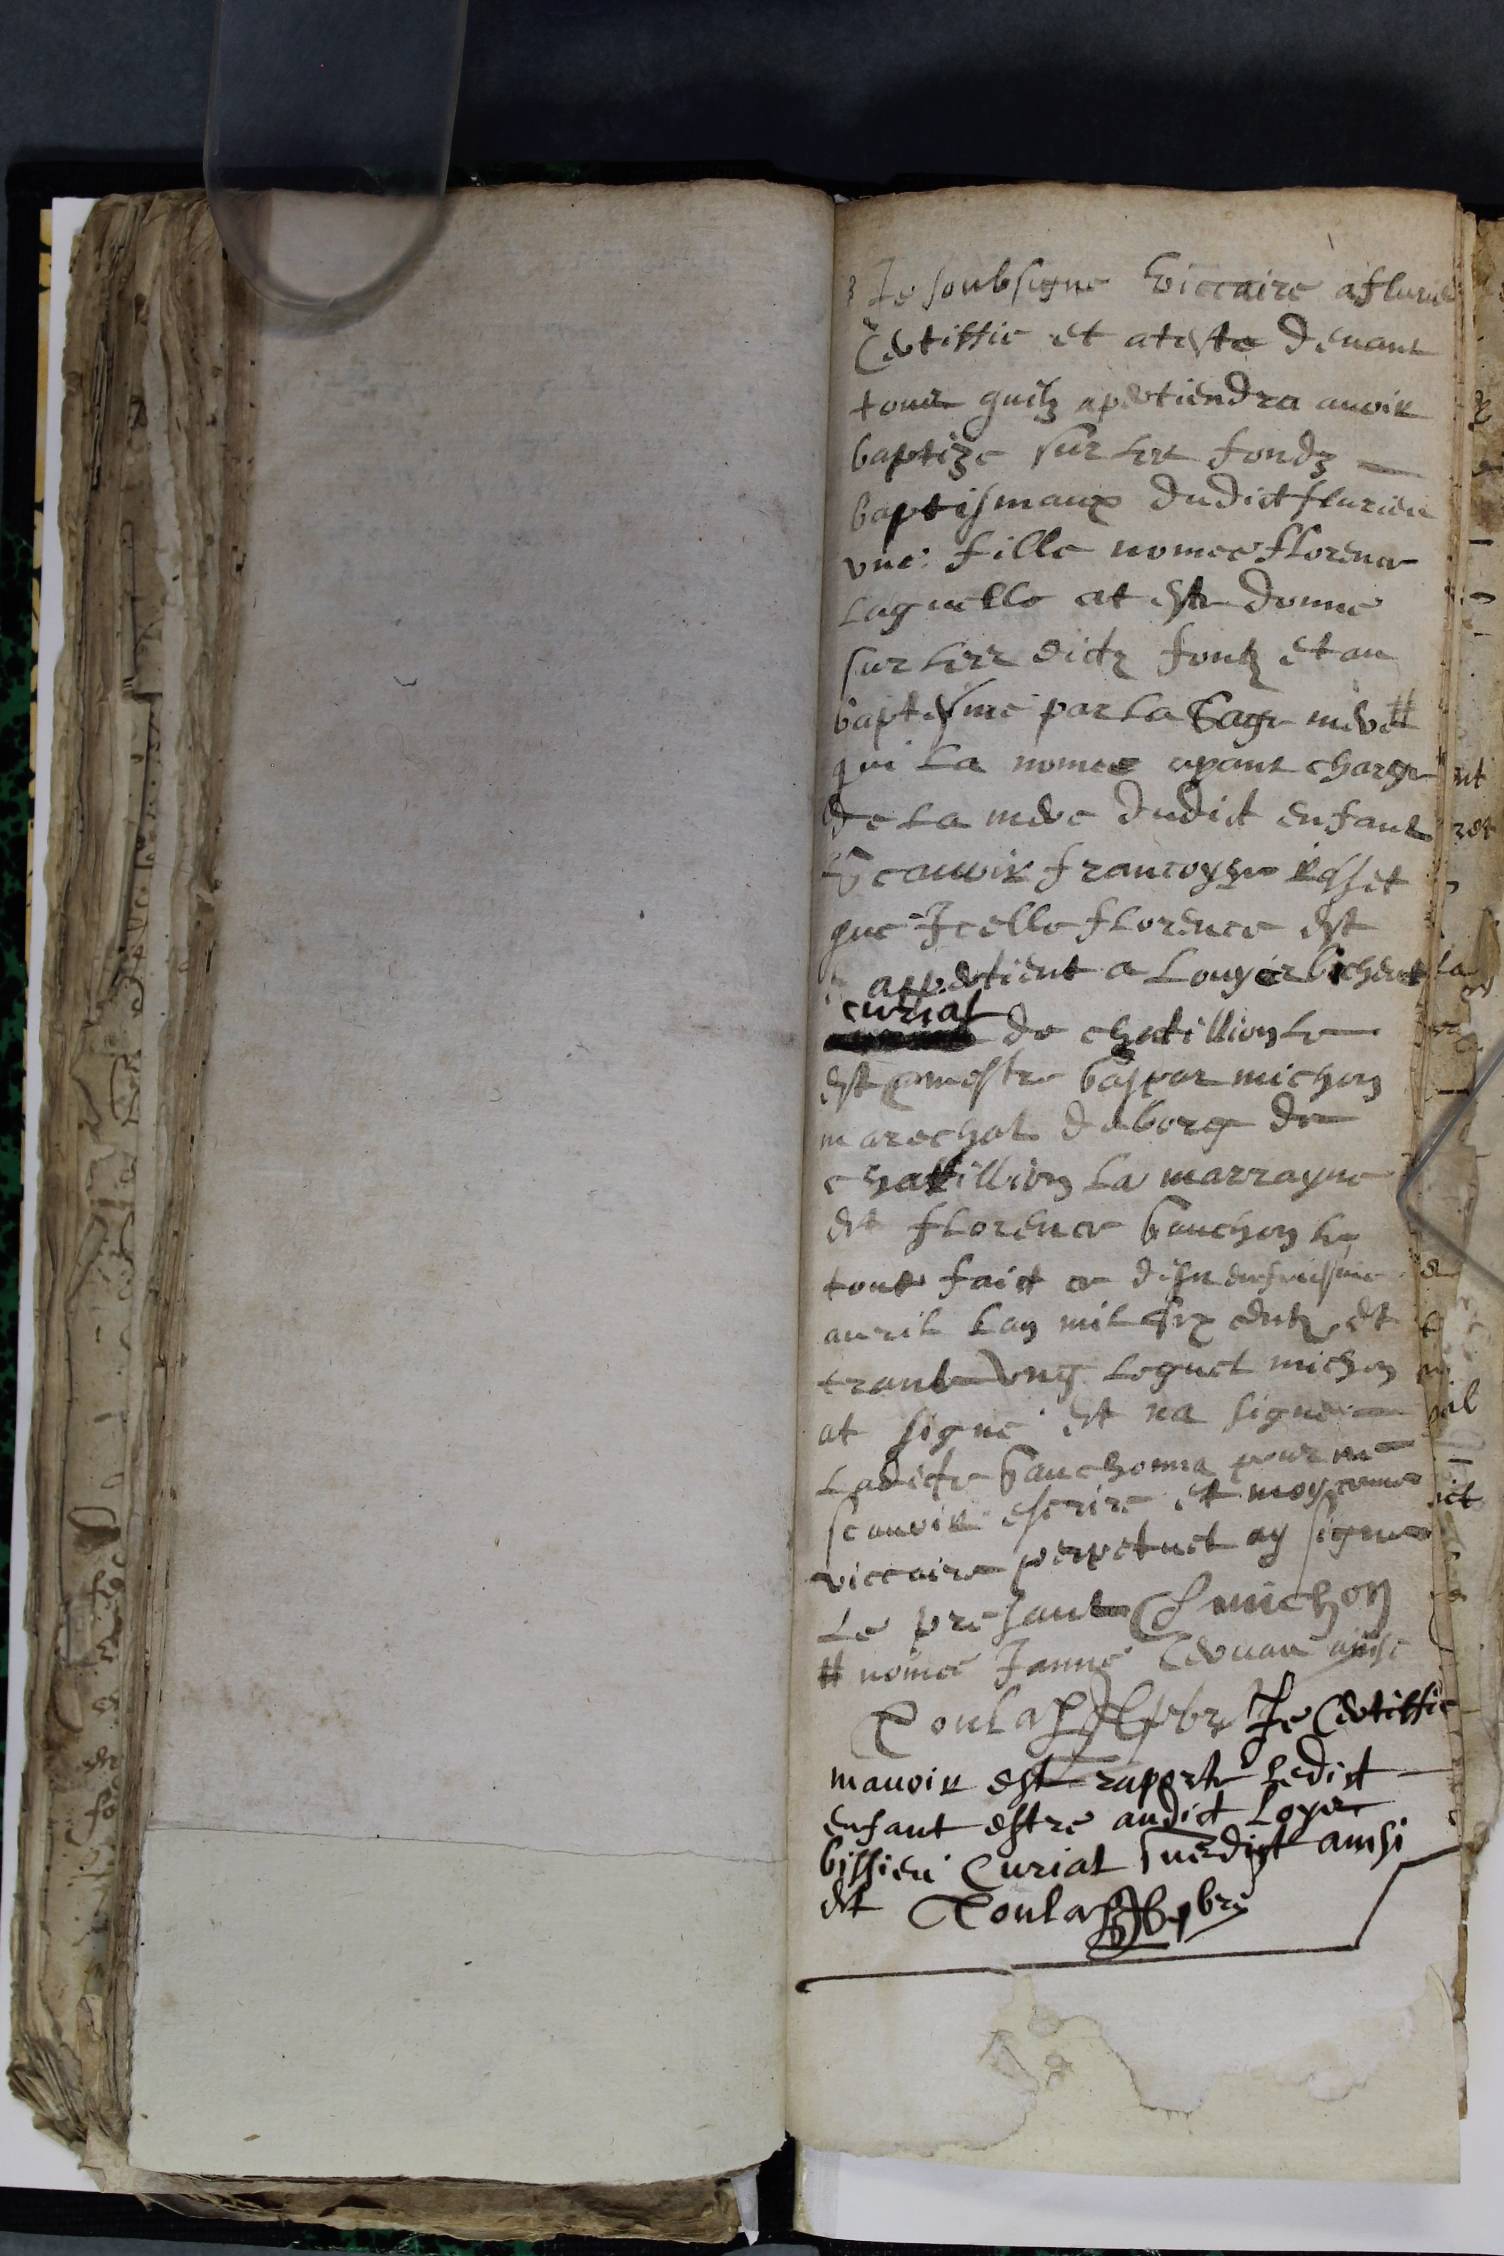 Je soubsigne viccaire a flurieu
Certiffie et ateste devant
tous quilz apertiendra avoir
baptize sur les fondz
baptismaux dudict flurieu
une fille nomee florence
laquelle at este donne
sur les dictz fontz et au
baptesme par la Sage mere #
qui la nomee ayant charge
de la mere dudict enfant
Scavoir francoyse
que Icelle florence est
apertient a Louys bicheut
curial
de chatillion le
est mestre gaspar michon
marechal du borg de
chatillion la marrayne
est florence ganchon le
tout faict ce
avril lan mil six centz et
trante ung lequel michon
at signe et na signe
ladicte ganchonna pour ne
scavoir escrire et moy come
viccaire perpetuel ay signe
le presant C michon
# nomee Janne
Toulas pbre Je Certiffie
mavoir est raporte ledict
enfant estre audict loys
bissieu Curial susdict ainsi
est Toulas pbre